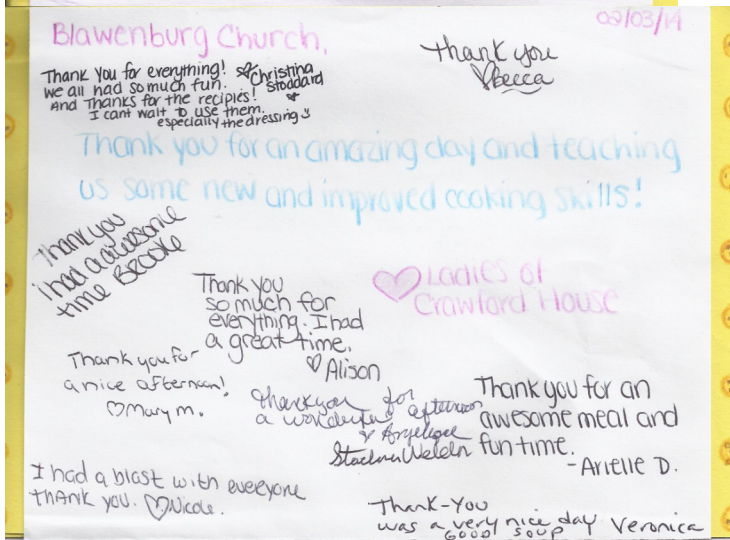 Blawenburg Church,
02/03/14
Thank you
Becca
Thank You for everything!
we all had so much fun.
And Thanks for the recipies!
I cant wait to use them.
especially the dressing
Christina
Stoddard
Thank you for an amazing day and teaching
us some new and improved cooking skills!
Thank you
i had a awesome
time Brooke
Ladies of
Crawford House
Thank you
so much for
everything. I had
a great time.
Alison
Thank you for
a nice afternoon!
Mary M.
thank you for
a wonderful afternoon
Angelique
Thank you for an
awesome meal and
fun time.
- Arielle D.
I had a blast with everyone
thank you. Nicole.
Thank-You
was a very nice day Veronica
GOOD SOUP